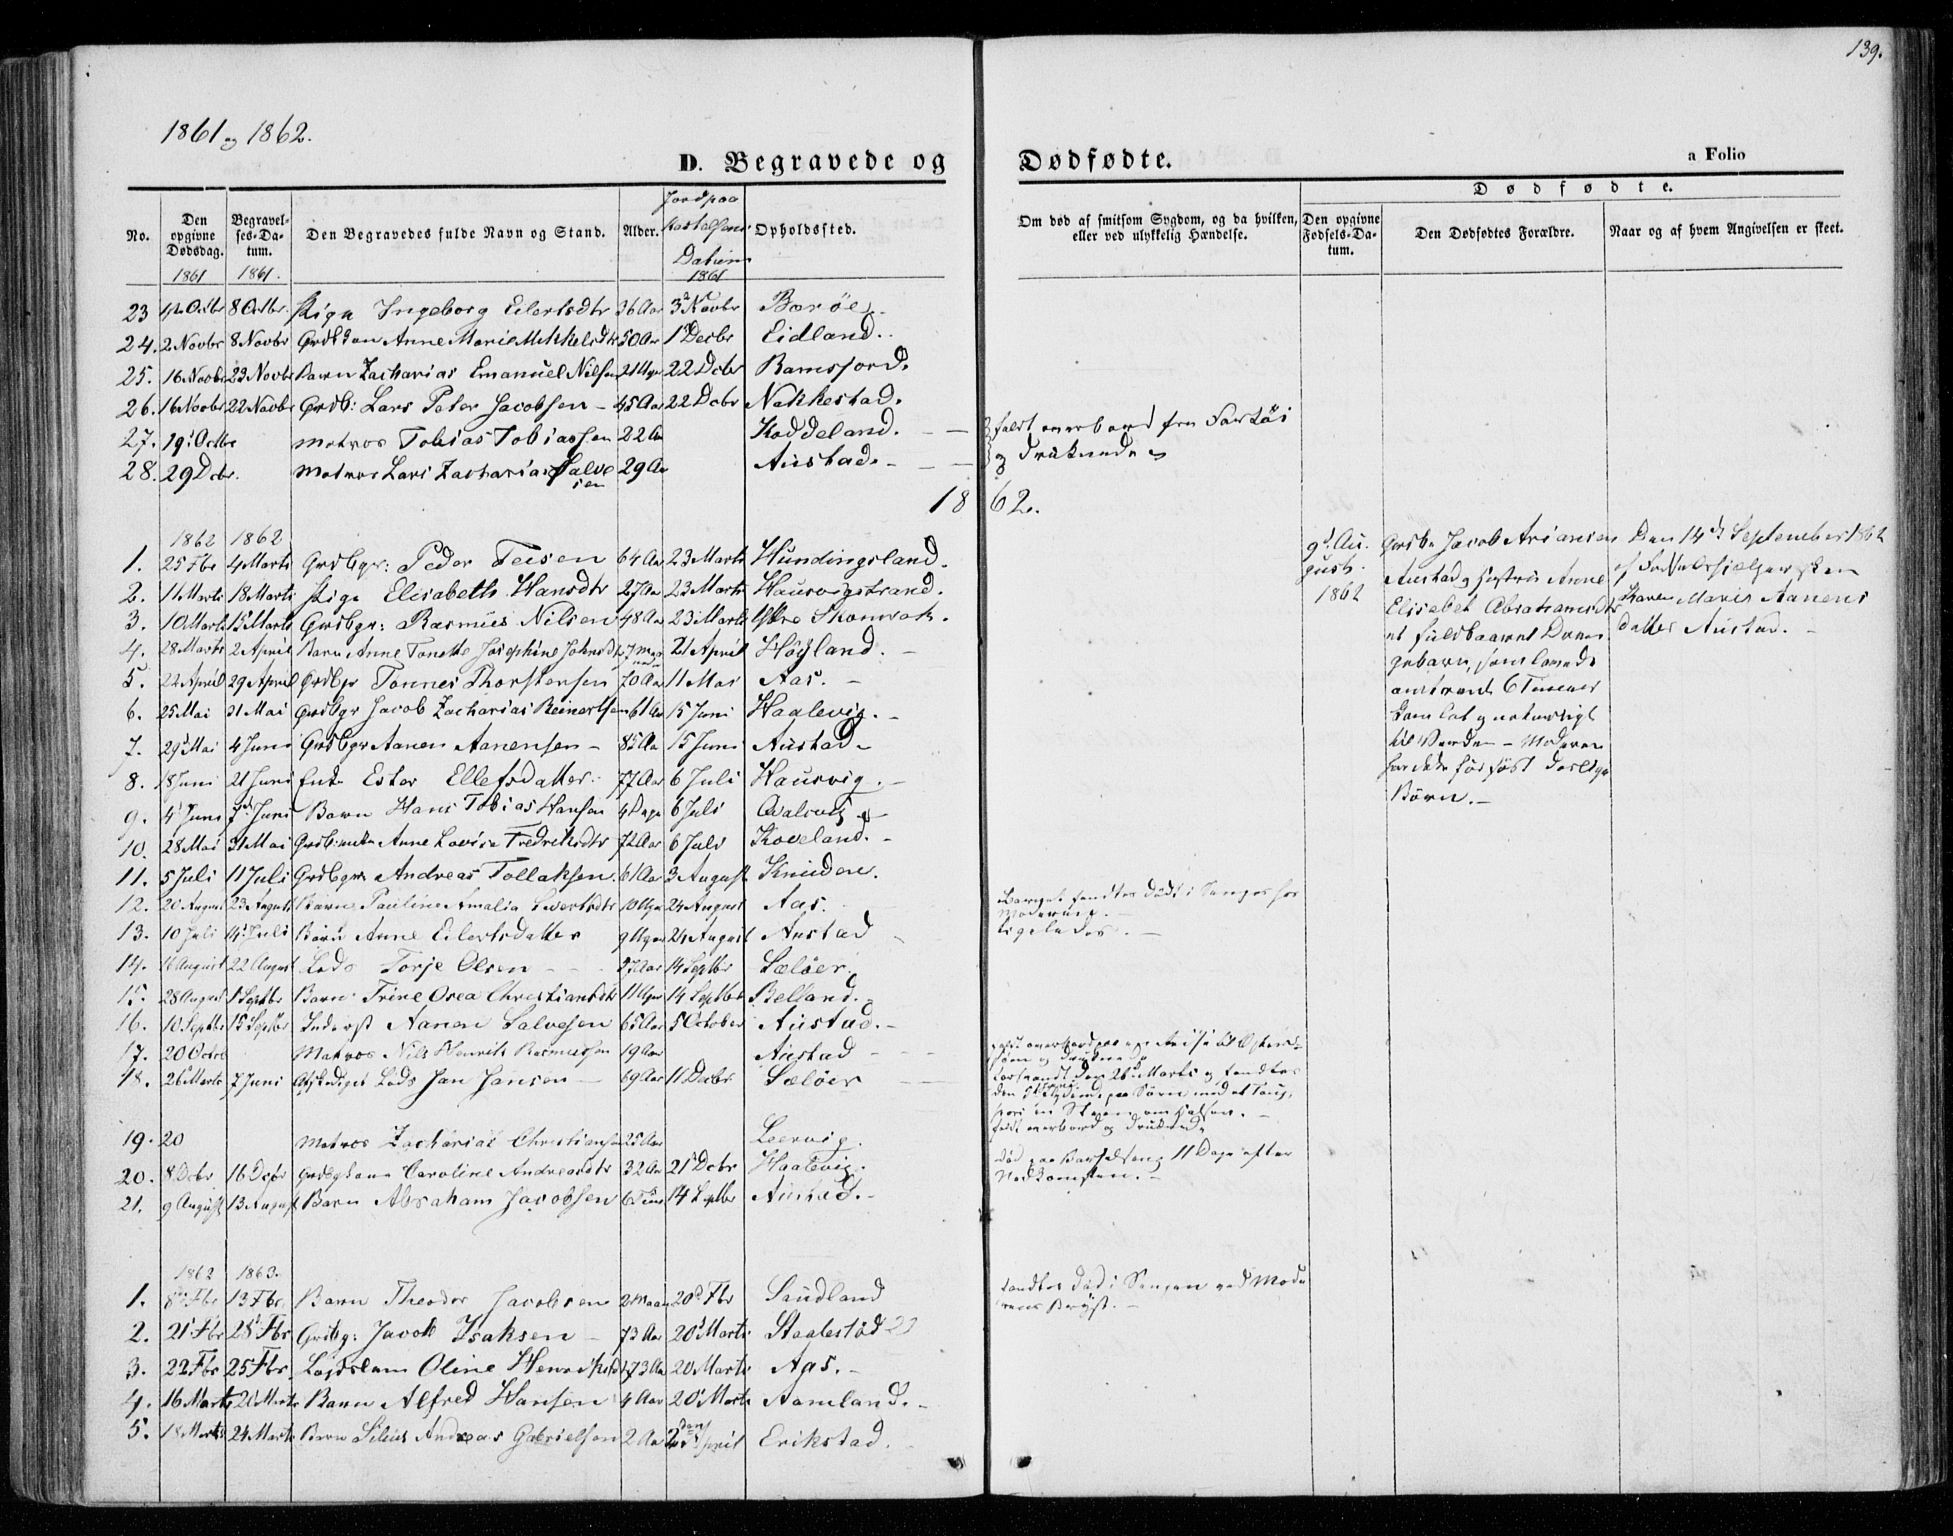 139.
1861 og 1862.
D. Begravede og Dødfødte.
a Folio
No. Den opgivne Dødsdag. 1861 Begravelses-Datum. 1861. Den Begravedes fulde Navn og Stand. Alder. Jordpaakastelsens Datum 1861 Opholdssted.
Om død af smitsom Sygdom, og da hvilken, eller ved ulykkelig Hændelse.
Dødfødte.
Den opgivne Fødsels-Datum. Den Dødfødtes Forældre. Naar og af hvem Angivelsen er skeet.
23 Octbr 8 Octbr. Pige Ingeborg Eilertsdtr 36 Aar 3 Novbr Barøe.
24. 2 Novbr 8 Novbr Anne Marie Mikkelsdtr 50 Aar 1 Decbr Eidland.
25. 16 Novbr 23 Novbr Barn Zacharias Emanuel Nilsen 21 Uger 22 Dcbr Ramsfjord.
26. 16 Novbr 22 Novbr Grdb: Lars Peter Jacobsen - 45 Aar 22 Dcbr Nakkestad.
27. 19 Octbr Matros Tobias Tobiassen 22 Aar Koddeland. - faldt overbord fra Fartøi
28. 29 Dcbr. Matros Lars Zacharias Salvesen 29 Aar Austad. - og druknede
1862.
1862 1862
1. 25 Fbr 4 Marts Grdbgr: Peder Teisen 64 Aar 23 Marts Hundingsland.
2. 11 Marts 18 Marts Pige Elisabeth Hansdtr 27 Aar 23 Marts Hausvigstrand.
3. 10 Marts 15 Marts Grdbgr: Rasmus Nilsen 48 Aar 23 Marts Ytre Skarvøk.
4. 28 Marts 2 April Barn Anne Tonette Josephine Johnsdtr 21 April Høyland. -
5. 22 April 29 April Grdbgr Tønnes Thorstensen 70 Aar 11 Mai Aas. -
6. 25 Mai 31 Mai Grdbgr Jacob Zacharias Reinertsen 61 Aar 15 Juni Haalevig. -
7. 29 Mai 4 Juni Grdbgr Aanen Aanensen - 85 Aar 15 Juni Austad -
8. 18 Juni 21 Juni Enke Ester Ellefsdatter. 77 Aar 6 Juli Hausvig. -
9. 4 Juni 7 Juni Barn Hans Tobias Hansen 4 Dage 6 Juli
10. 28 Mai 31 Mai Anne Lovise Fredriksdtr 72 Aar 6 Juli Koveland. -
11. 5 Juli 11 Juli Grdbgr Andreas Tollaksen. 61 Aar 3 August Knuden.
12. 20 August 23 August Barn Pauline Amalia Sivertsdtr 10 Uger 24 August Aas. Barnet fandtes død i Sengen hos Moderen. -
13. 10 Juli 14 Juli Barn Anne Eilertsdatter 9 Uger 24 August Austad - ligeledes. -
14. 16 August 22 August Lods Torje Olsen - 14 Septbr Sæløer.
15. 28 August 1 Septbr Barn Trine Osea Christiansdtr 11 14 Septbr Belland. -
16. 10 Septbr 15 Septbr Inderst Aanen Salvesen 65 Aar 5 October Austad. -
17. 20 Octbr Matros Nils Henrik Rasmussen 19 Aar Austad - faldt overbord paa en Reise til Østersøen og druknede
18. 26 Marts 7 Juni Afskediget Lods Jan Jansen - 69 Aar 11 Decbr Sæløer - Forsvandt den 26 Marts og fandtes den paa Søen med et Toug, hvori en Steen om Halsen. -
19. 20 Matros Zacharias Christiansen 25 Aar Leervig. faldt overbord og druknede
20. 8 Dcbr 16 Dcbr Caroline Andreasdtr 32 Aar 21 Dcbr Haalevig. død paa Barselseng 11 Dage efter Nedkomsten. -
21. 9 August 13 August Barn Abraham Jacobsen 6 Tim 14 Septbr Austad. -
9d August 1862
Grdbr Jacob Ariansen Austad og Hustru Anne Elisabet Abrahamsdtr et fuldbaaret Drengebarn, som levede omtrent 6 Timer kom let og naturligt til Verden - Moderen har ikke før født dødfødte Børn. -
Den 14d September 1862 af Fødselshjælpersken Karen Marie Aanensdatter Austad. -
1862 1863.
1. 8 Fbr 13 Fbr. Barn Theodor Jacobsen 2 Maan 20 Fbr Saudland fandtes død i Sengen ved Moderens Bryst. -
2. 21 Fbr 28 Fbr Grdbg: Jacob Isaksen - 73 Aar 20 Marts Staalestad
3. 22 Fbr 25 Fbr. Lægdslem Oline Henriksdtr 73 Aar 20 Marts Aas. -
4. 16 Marts 21 Marts Barn Alfred Hansen 4 Aar 20 Marts Aamland. -
5. 18 Marts 24 Marts Barn Silius Andreas Gabrielsen 2 Aar April Erikstad.